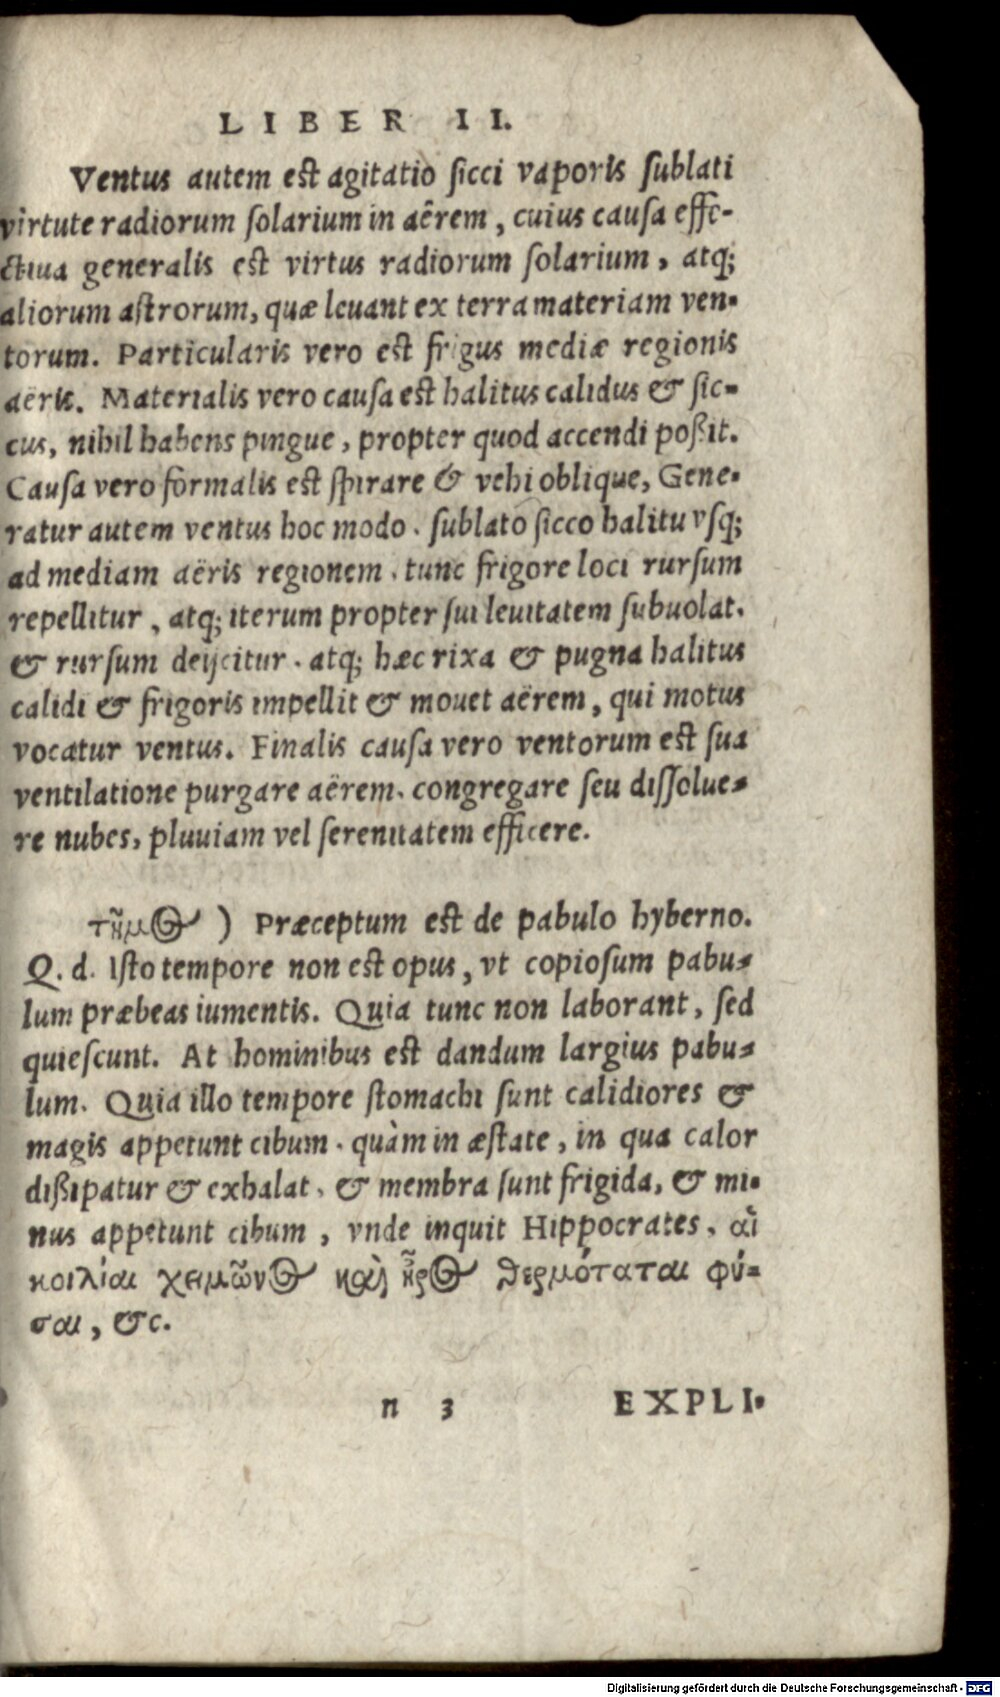 LIBER II.
Ventus autem est agitatio sicci vaporis sublati
virtute radiorum solarium in aërem, cuius causa effe-
ctiua generalis est virtus radiorum solarium, atq;
aliorum astrorum, quæ leuant ex terra materiam ven-
torum. Particularis vero est frigus mediæ regionis
aëris. Materialis vero causa est halitus calidus & sic-
cus, nihil habens pingue, propter quod accendi poßit.
Causa vero formalis est spirare & vehi oblique, Gene-
ratur autem ventus hoc modo. sublato sicco halitu vsq;
ad mediam aëris regionem, tunc frigore loci rursum
repellitur, atq; iterum propter sui leuitatem subuolat.
& rursum deijcitur. atq; hæc rixa & pugna halitus
calidi & frigoris impellit & mouet aërem, qui motus
vocatur ventus. Finalis causa vero ventorum est sua
ventilatione purgare aërem. congregare seu dissolue-
re nubes, pluuiam vel serenitatem efficere.
τῆμος ) Præceptum est de pabulo hyberno.
Q. d. Isto tempore non est opus, vt copiosum pabu-
lum præbeas iumentis. Quia tunc non laborant, sed
quiescunt. At hominibus est dandum largius pabu-
lum. Quia illo tempore stomachi sunt calidiores &
magis appetunt cibum. quàm in æstate, in qua calor
dißipatur & exhalat, & membra sunt frigida, & mi-
nus appetunt cibum, vnde inquit Hippocrates, αἱ
κοιλίαι χειμῶνος καὶ ἦρος θερμόταται φύ-
σαι, &c.
n 3 EXPLI-
Digitalisierung gefördert durch die Deutsche Forschungsgemeinschaft - DFG